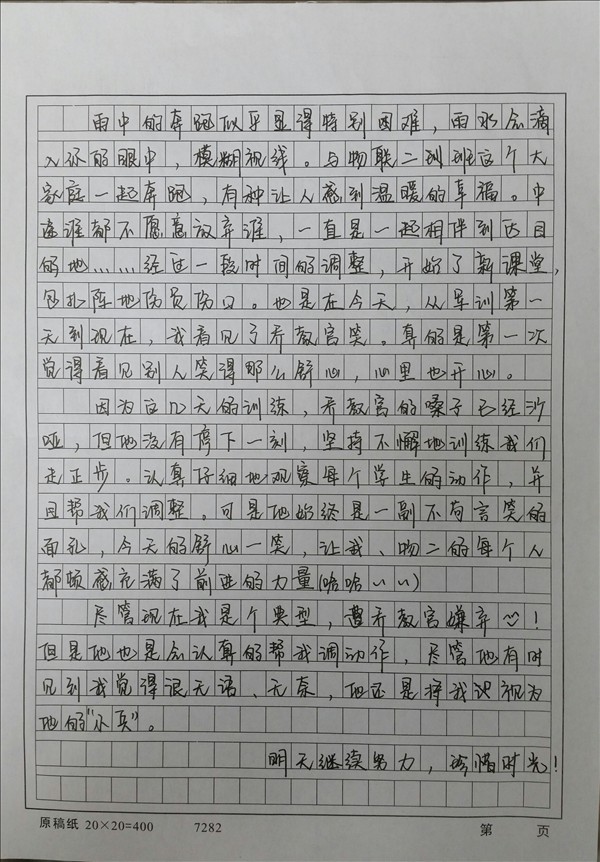 雨中的奔跑似乎显得特别困难，雨水会滴
入你的眼中，模糊视线。与物联二班这个大
家庭一起奔跑，有种让人感到温暖的幸福。中
途谁都不愿意放弃谁，一直是一起相伴到达目
的地……经过一段时间的调整，开始了新课堂，
包扎阵地伤员伤口。也是在今天，从军训第一
天到现在，我看见了乔教官笑。真的是第一次
觉得看见别人笑得那么舒心，心里也开心。
因为这几天的训练，乔教官的嗓子已经沙
哑，但他没有停下一刻，坚持不懈地训练我们
走正步。认真仔细地观察每个学生的动作，并
且帮我们调整。可是他始终是一副不苟言笑的
面孔，今天的舒心一笑，让我、物二的每个人
都顿感充满了前进的力量(哈哈~~)
尽管现在我是个典型，遭乔教官嫌弃！
但是他也是会认真的帮我调动作，尽管他有时
见到我觉得很无语、无奈，他还是将我视为
他的“小兵”。
明天继续努力，珍惜时光！
原稿纸 20×20=400 7282 第 页